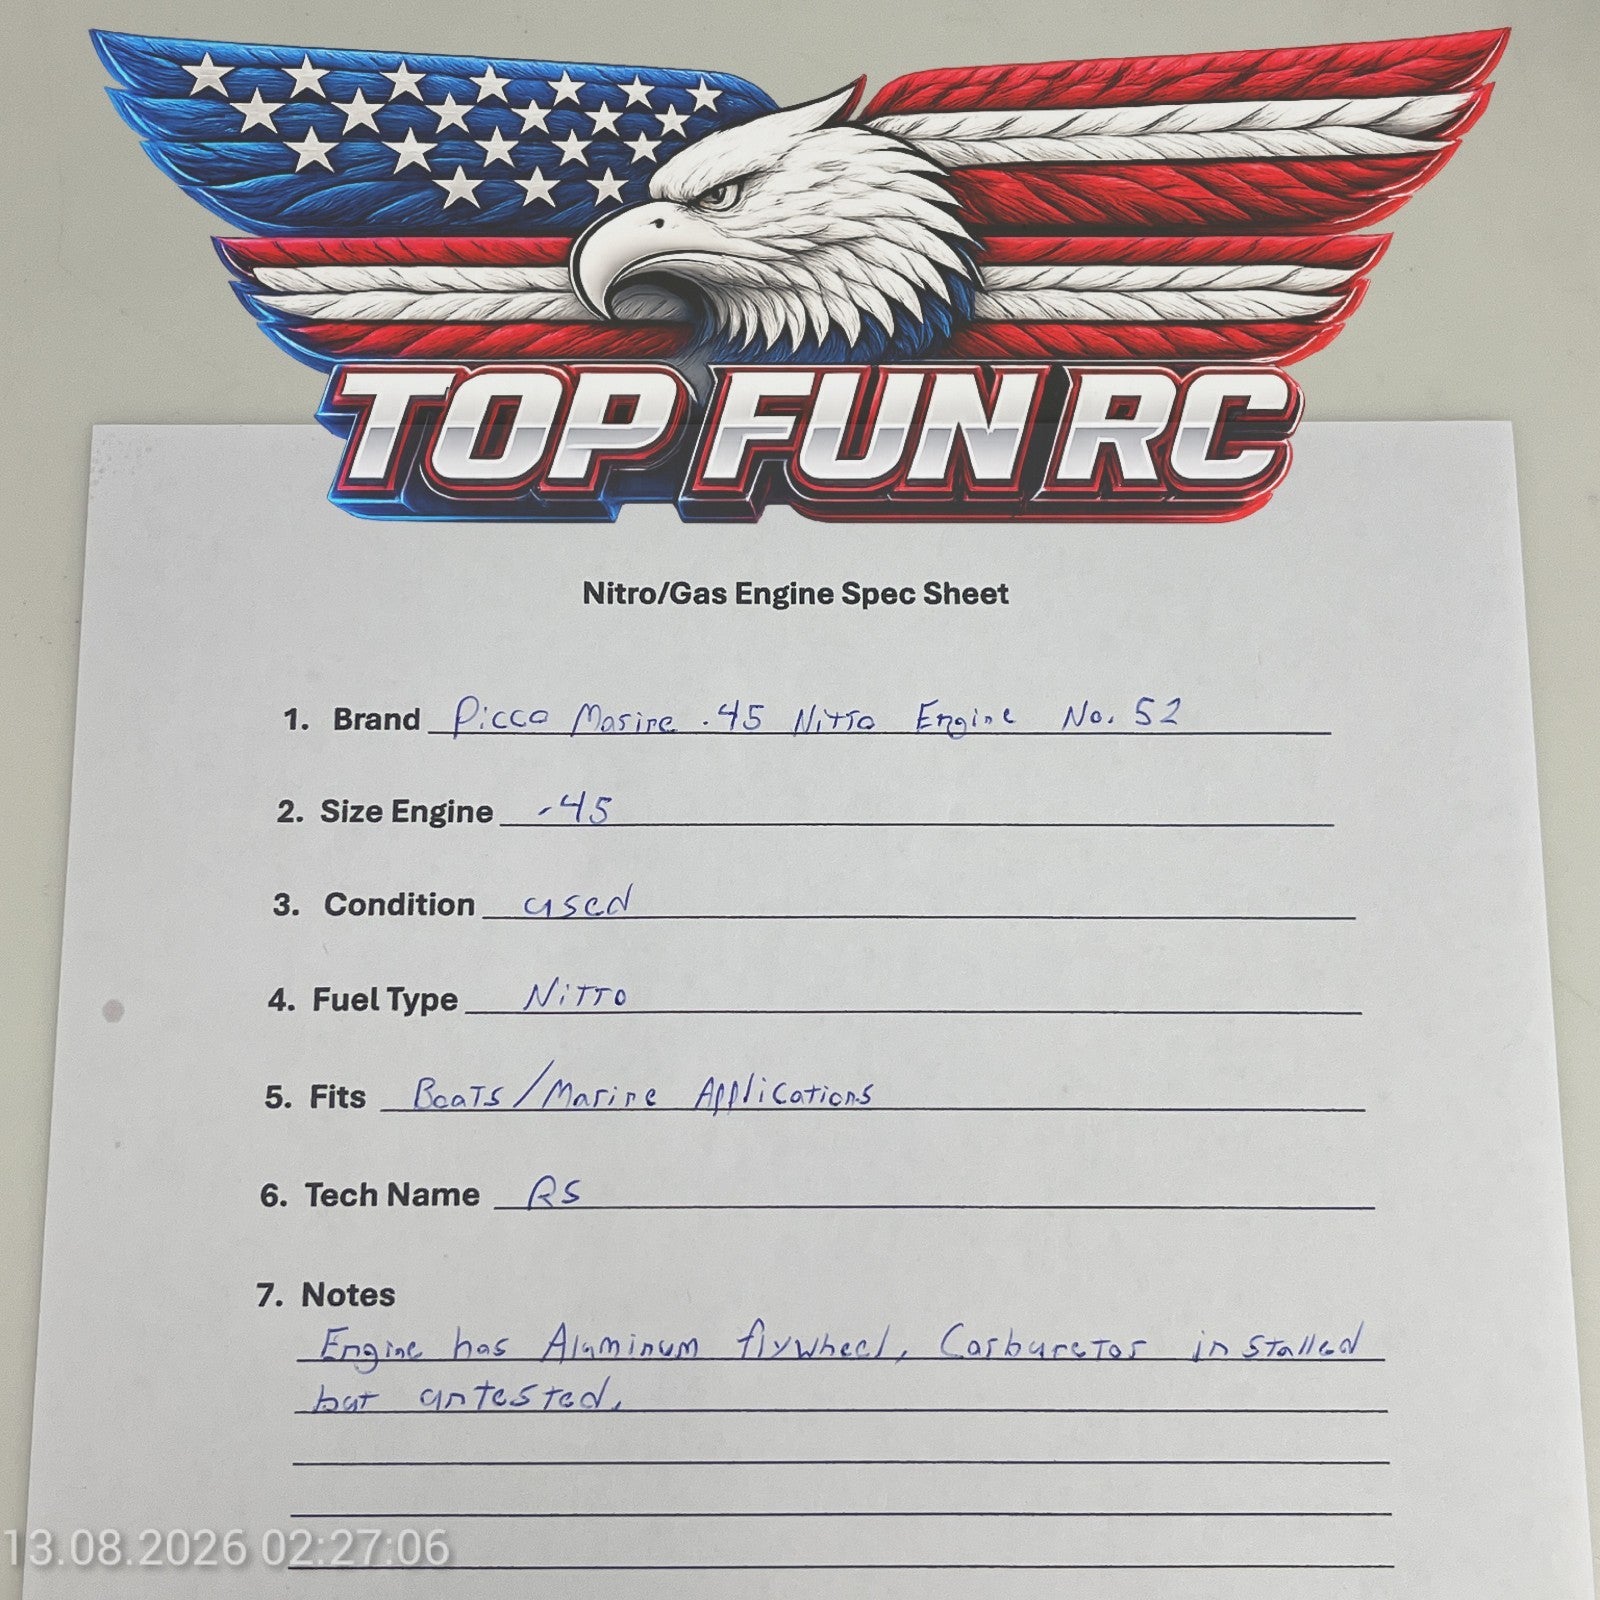 TOP FUN RC
Nitro/Gas Engine Spec Sheet
1. Brand Picco Marine .45 Nitro Engine No. 52
2. Size Engine .45
3. Condition used
4. Fuel Type Nitro
5. Fits Boats/Marine Applications
6. Tech Name RS
7. Notes
Engine has Aluminum flywheel, Carburetor installed
but untested.
13.08.2026 02:27:06